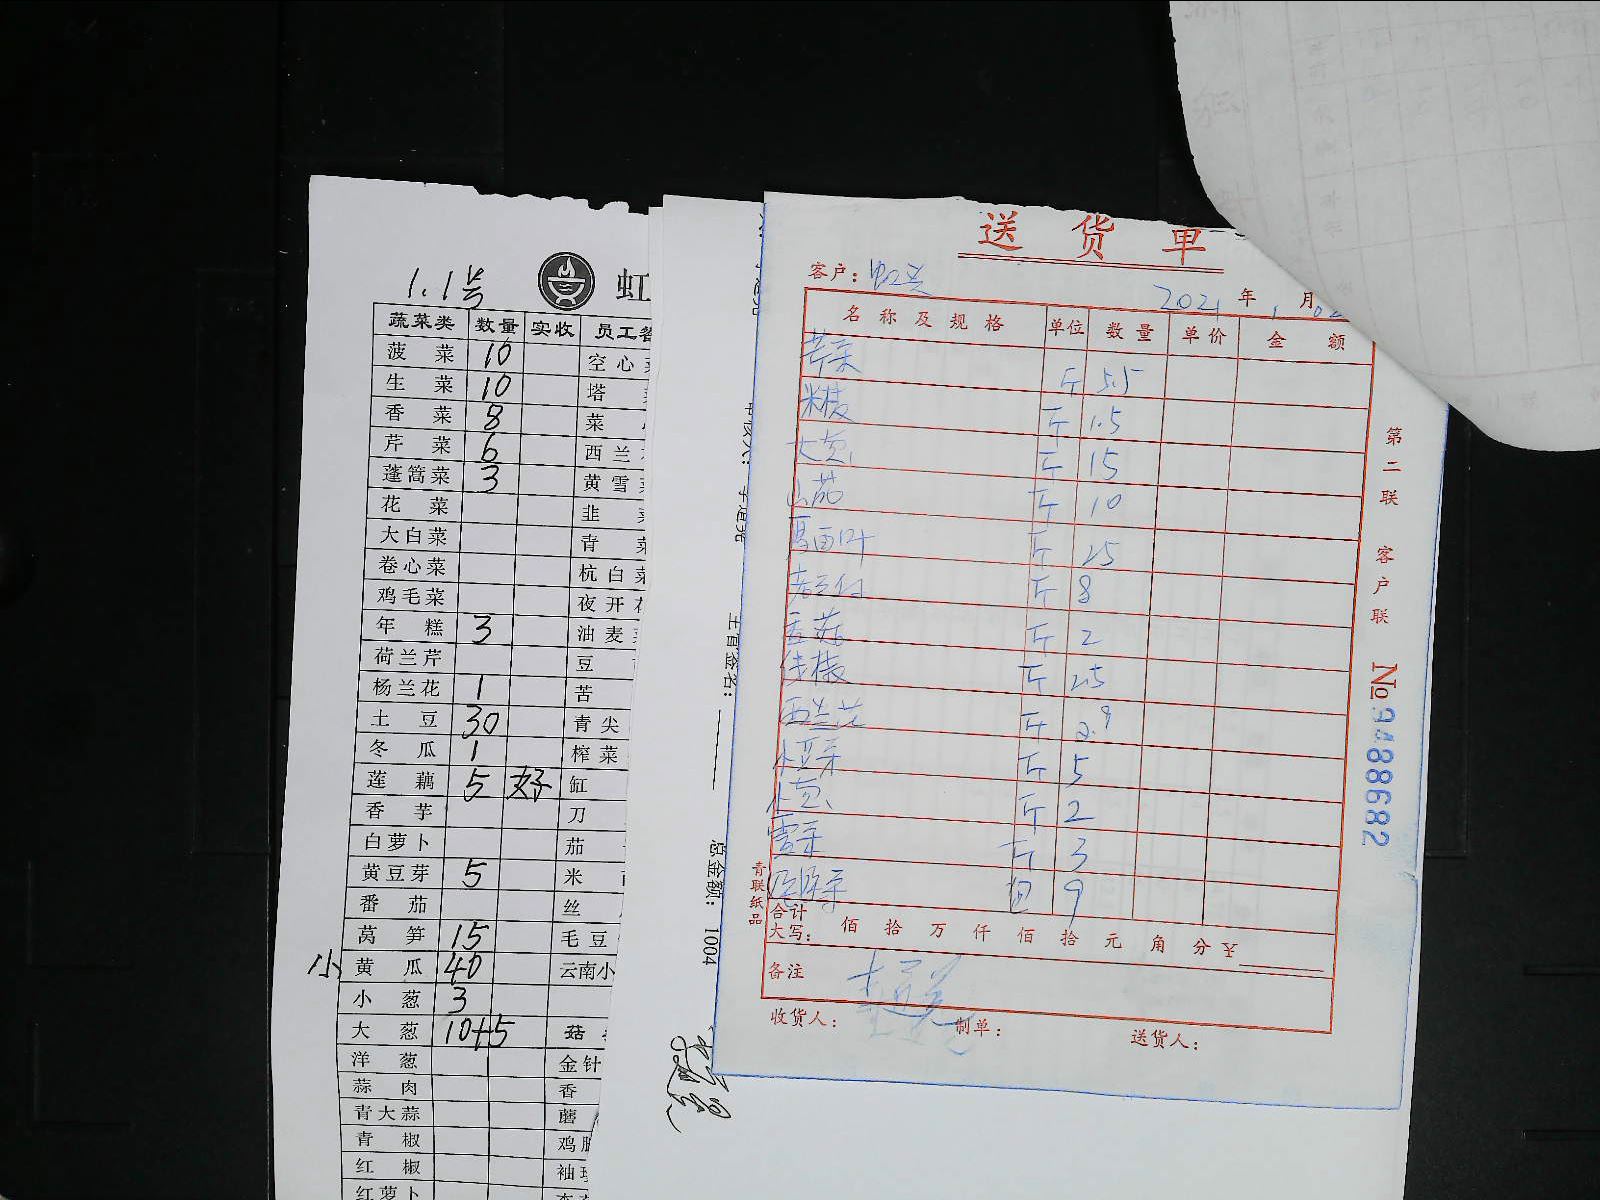 1.1号
虹
蔬菜类 数量 实收 员工
菠菜 10 空心
生菜 10 塔
香菜 8 菜
芹菜 6 西兰
蓬篙菜 3 黄雪
花菜 韭
大白菜 青
卷心菜 杭白菜
鸡毛菜 夜开
年糕 3 油麦
荷兰芹 豆
杨兰花 1 苦
土豆 30 青尖
冬瓜 1 榨菜
莲藕 5 好 缸
香芋 刀
白萝卜 茄
黄豆芽 5 米
番茄 丝
莴笋 15 毛豆
小 黄瓜 40 云南小
小葱 3
大葱 10+5 菇
洋葱 金针
蒜肉 香
青大蒜 蘑
青椒 鸡
红椒 袖
红萝卜
主管签名:
总金额: 1004
送货单
客户:
2021年 1月
名称及规格 单位 数量 单价 金额
芹菜 斤 5.5
米椒 斤 1.5
大葱 斤 15
山茄 斤 10
斤 25
老豆付 斤 8
香菇 斤 2
尖椒 斤 25
西兰花 斤 2.9
小豆芽 斤 5
小葱 斤 2
雪菜 斤 3
包 9
合计
大写: 佰拾万仟佰拾元角分¥
备注
收货人: 制单: 送货人:
第二联 客户联
青联纸品